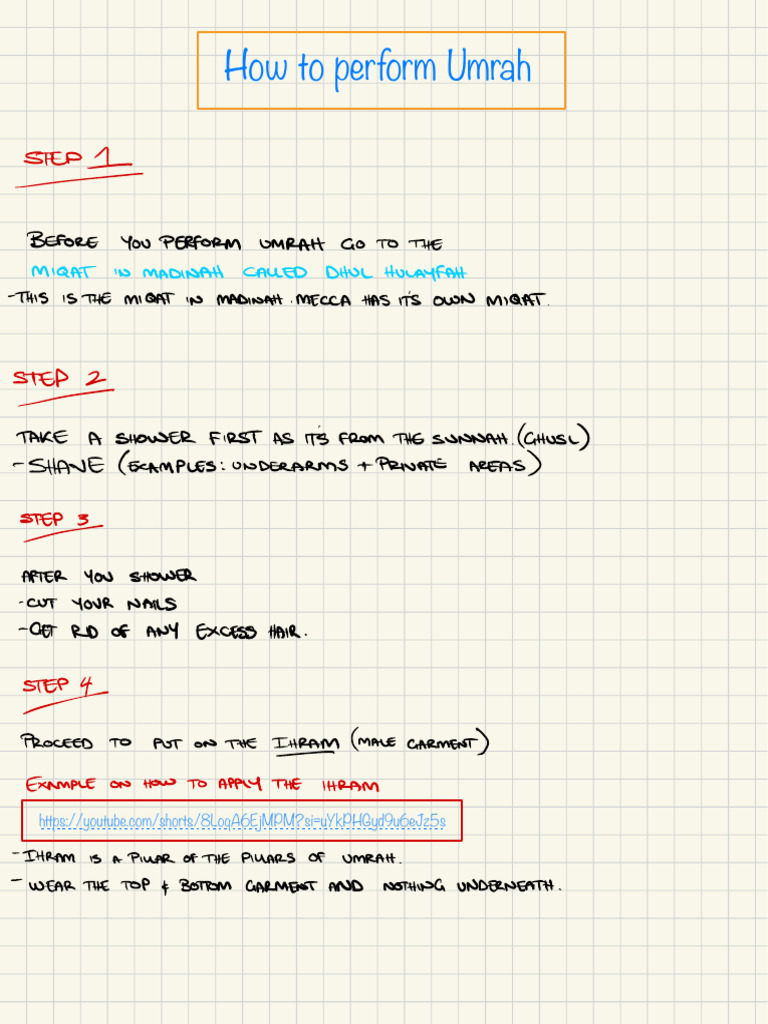 How to perform Umrah
STEP 1
BEFORE YOU PERFORM UMRAH GO TO THE
MIQAT IN MADINAH CALLED DHUL HULAYFAH
-THIS IS THE MIQAT IN MADINAH. MECCA HAS IT'S OWN MIQAT.
STEP 2
TAKE A SHOWER FIRST AS IT'S FROM THE SUNNAH. (GHUSL)
- SHAVE (EXAMPLES: UNDERARMS + PRIVATE AREAS)
STEP 3
AFTER YOU SHOWER
-CUT YOUR NAILS
-GET RID OF ANY EXCESS HAIR.
STEP 4
PROCEED TO PUT ON THE IHRAM (MALE GARMENT)
EXAMPLE ON HOW TO APPLY THE IHRAM
https://youtube.com/shorts/8LoqA6EjMPM?si=uYkPHGyd9u6eJz5s
- IHRAM IS A PILLAR OF THE PILLARS OF UMRAH.
- WEAR THE TOP & BOTTOM GARMENT AND NOTHING UNDERNEATH.